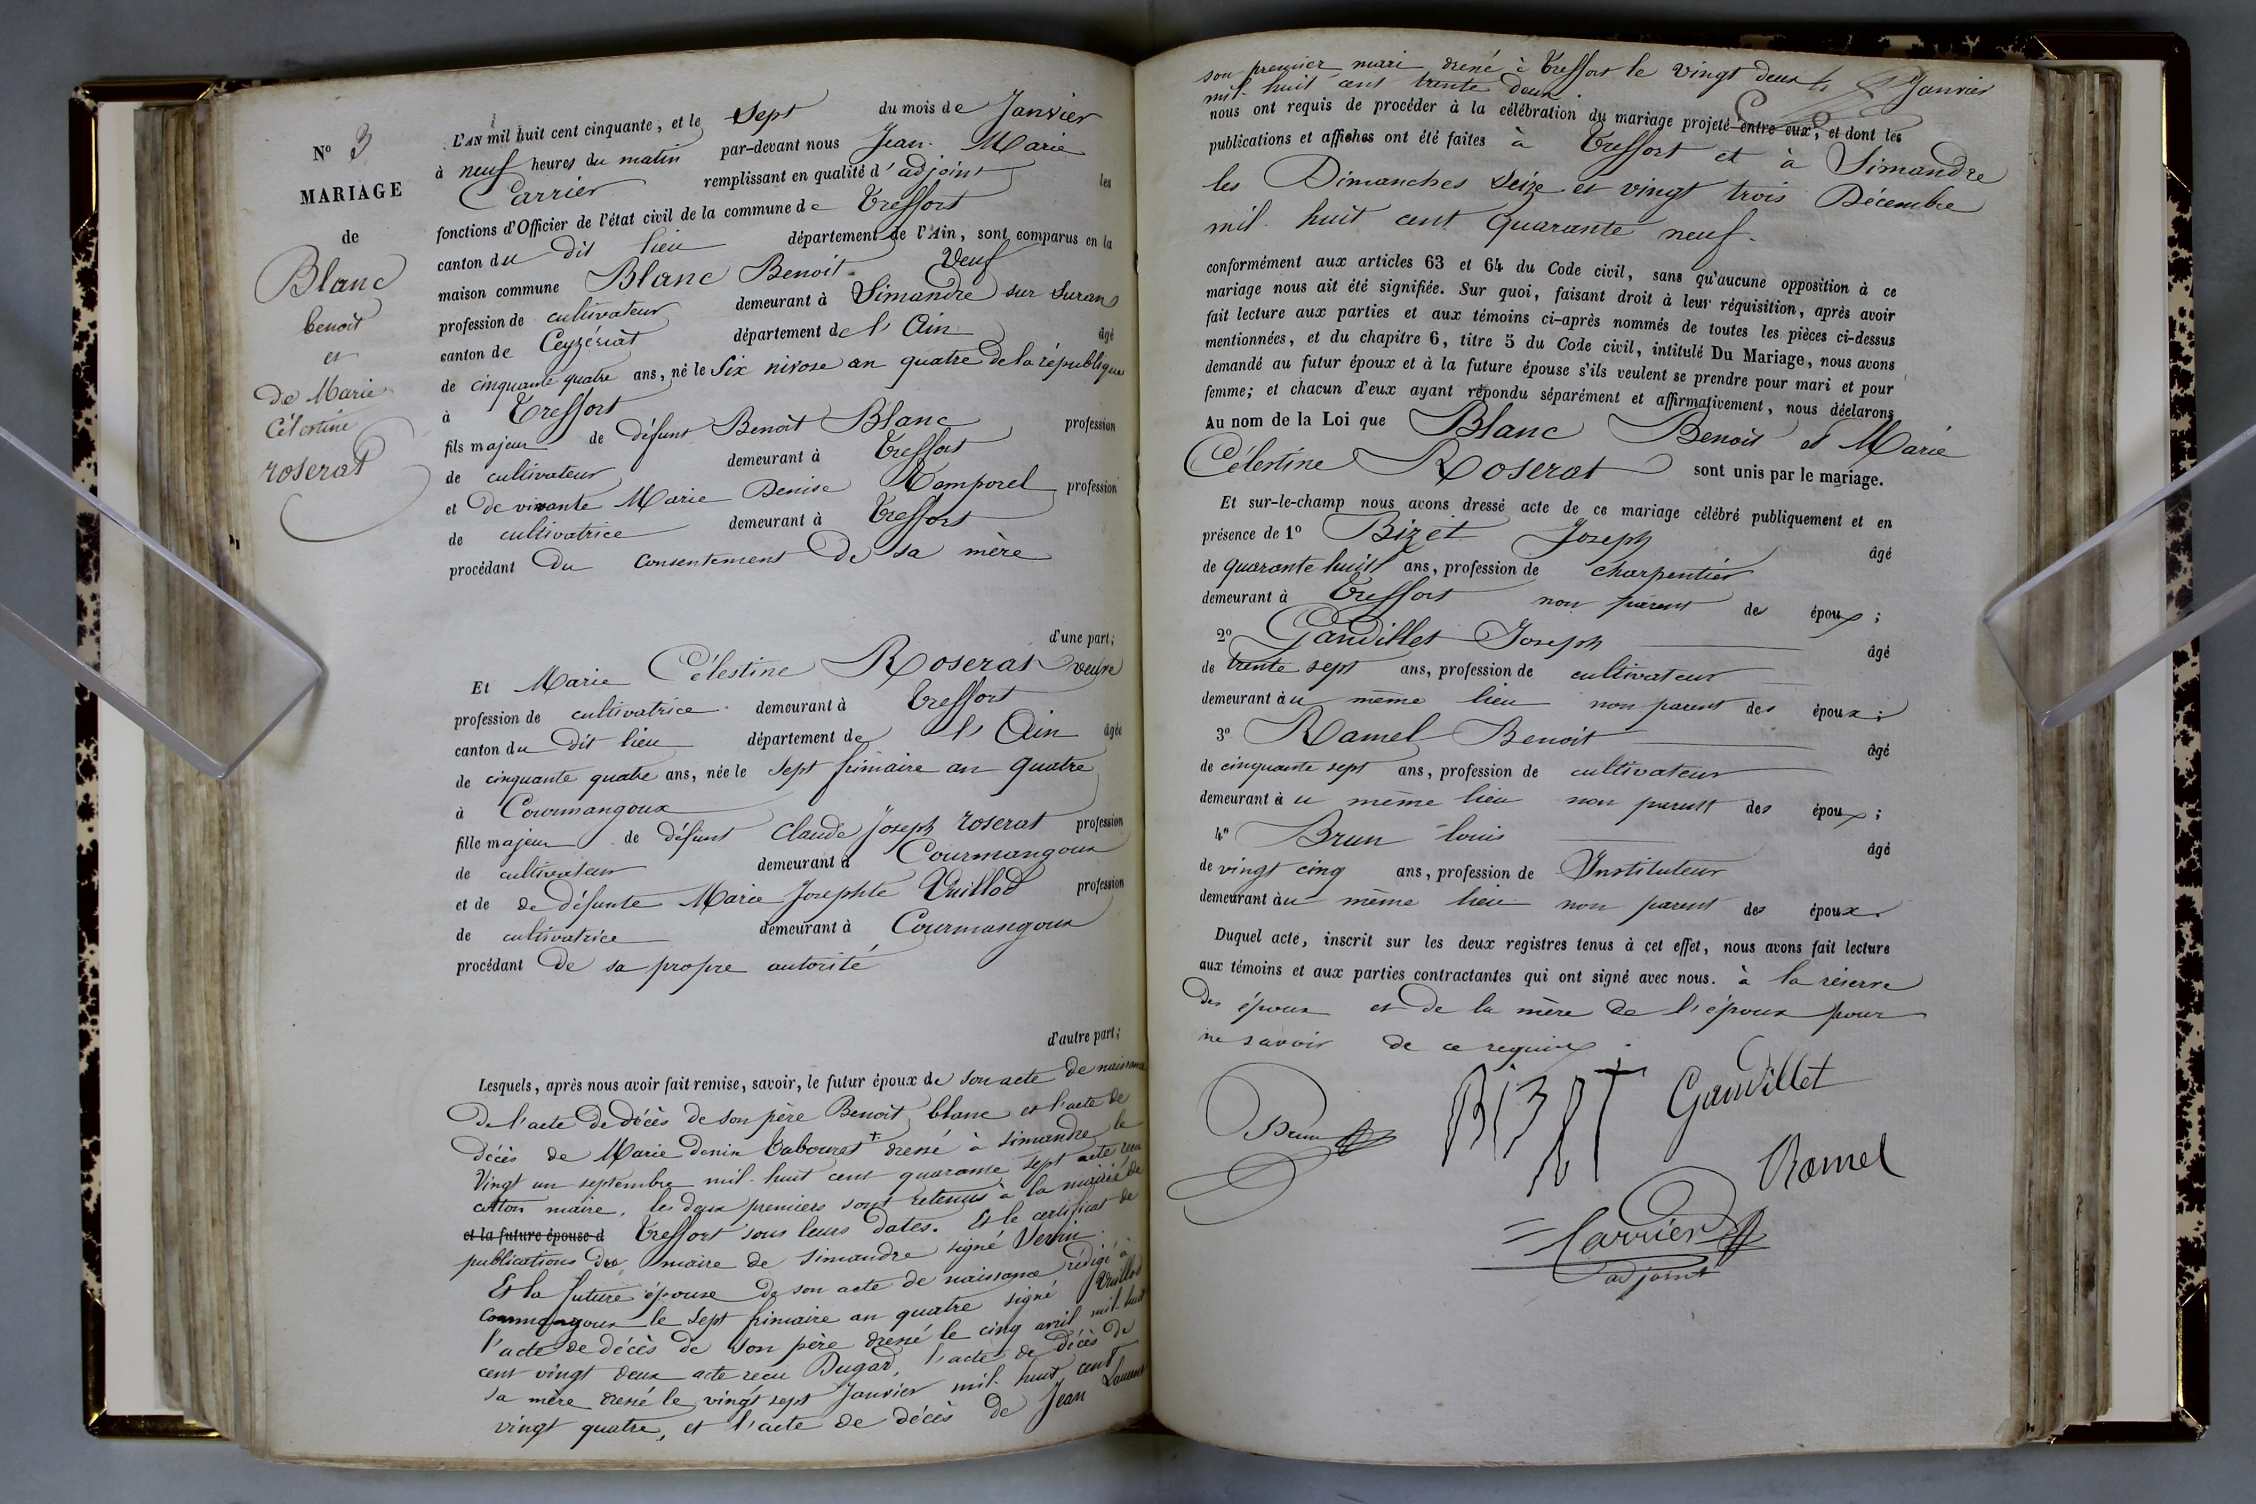 N° 3
MARIAGE
de
Blanc
benoit
et
de Marie
Célestine
roserat
L'AN mil huit cent cinquante, et le Sept du mois de Janvier
à neuf heures du matin par-devant nous Jean Marie
Carrier remplissant en qualité d'adjoint les
fonctions d'Officier de l'état civil de la commune de Treffort
canton du dit lieu département de l'Ain, sont comparus en la
maison commune Blanc Benoit Veuf
profession de cultivateur demeurant à Simandre sur Suran
canton de Ceyzériat département de l'Ain âgé
de cinquante quatre ans, né le Six nivose an quatre de la république
à Treffort
fils majeur de défunt Benoit Blanc profession
de cultivateur demeurant à Treffort
et de vivante Marie Denise Remporel profession
de cultivatrice demeurant à Treffort
procédant du consentement de sa mère
d'une part;
Et Marie Célestine Roserat veuve
profession de cultivatrice demeurant à Treffort
canton du dit lieu département de l'Ain âgée
de cinquante quatre ans, née le Sept frimaire an quatre
à Courmangoux
fille majeur de défunt Claude Joseph roserat profession
de cultivateur demeurant à Courmangoux
et de de défunte Marie Josephte Vuillod profession
de cultivatrice demeurant à Courmangoux
procédant de sa propre autorité
d'autre part;
Lesquels, après nous avoir fait remise, savoir, le futur époux de son acte de naissance
de l'acte de décès de son père Benoit blanc et l'acte de
décès de Marie denise tabouret dressé à simandre le
Vingt un septembre mil huit cent quarante sept acte reçu
maire, les deux premiers sont retenus à la mairie de
et la future épouse d Treffort sous leurs dates. Et le certificat de
publications du maire de simandre signé
Et la future épouse de son acte de naissance rédigé à
Courmangoux le sept frimaire an quatre signé Vuillod
l'acte de décès de son père dressé le cinq avril mil huit
cent vingt deux acte reçu Dugad, l'acte de décès de
sa mère dressé le vingt sept Janvier mil huit cent
vingt quatre, et l'acte de décès de Jean Laurent
son premier mari dressé à Treffort le vingt deux Janvier
mil huit cent trente deux.
nous ont requis de procéder à la célébration du mariage projeté entre eux, et dont les
publications et affiches ont été faites à Treffort et à Simandre
les Dimanches Seize et vingt trois Décembre
mil huit cent quarante neuf.
conformément aux articles 63 et 64 du Code civil, sans qu'aucune opposition à ce
mariage nous ait été signifiée. Sur quoi, faisant droit à leur réquisition, après avoir
fait lecture aux parties et aux témoins ci-après nommés de toutes les pièces ci-dessus
mentionnées, et du chapitre 6, titre 5 du Code civil, intitulé Du Mariage, nous avons
demandé au futur époux et à la future épouse s'ils veulent se prendre pour mari et pour
femme; et chacun d'eux ayant répondu séparément et affirmativement, nous déclarons
Au nom de la Loi que Blanc Benoit et Marie
Célestine Roserat sont unis par le mariage.
Et sur-le-champ nous avons dressé acte de ce mariage célébré publiquement et en
présence de 1° Bizet Joseph âgé
de quarante huit ans, profession de charpentier
demeurant à Treffort non parent des époux;
2° Gauvillet Joseph âgé
de trente sept ans, profession de cultivateur
demeurant au même lieu non parent des époux;
3° Ramel Benoit âgé
de cinquante sept ans, profession de cultivateur
demeurant à u même lieu non parent des époux;
4° Brun louis âgé
de vingt cinq ans, profession de Instituteur
demeurant au même lieu non parent des époux.
Duquel acte, inscrit sur les deux registres tenus à cet effet, nous avons fait lecture
aux témoins et aux parties contractantes qui ont signé avec nous. à la réserve
des époux et de la mère de l'époux pour
ne savoir de ce requis.
Brun
BIZET
Gauvillet
Ramel
Carrier
adjoint